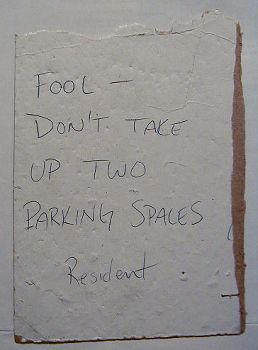 FOOL –
DON'T TAKE
UP TWO
PARKING SPACES
Resident